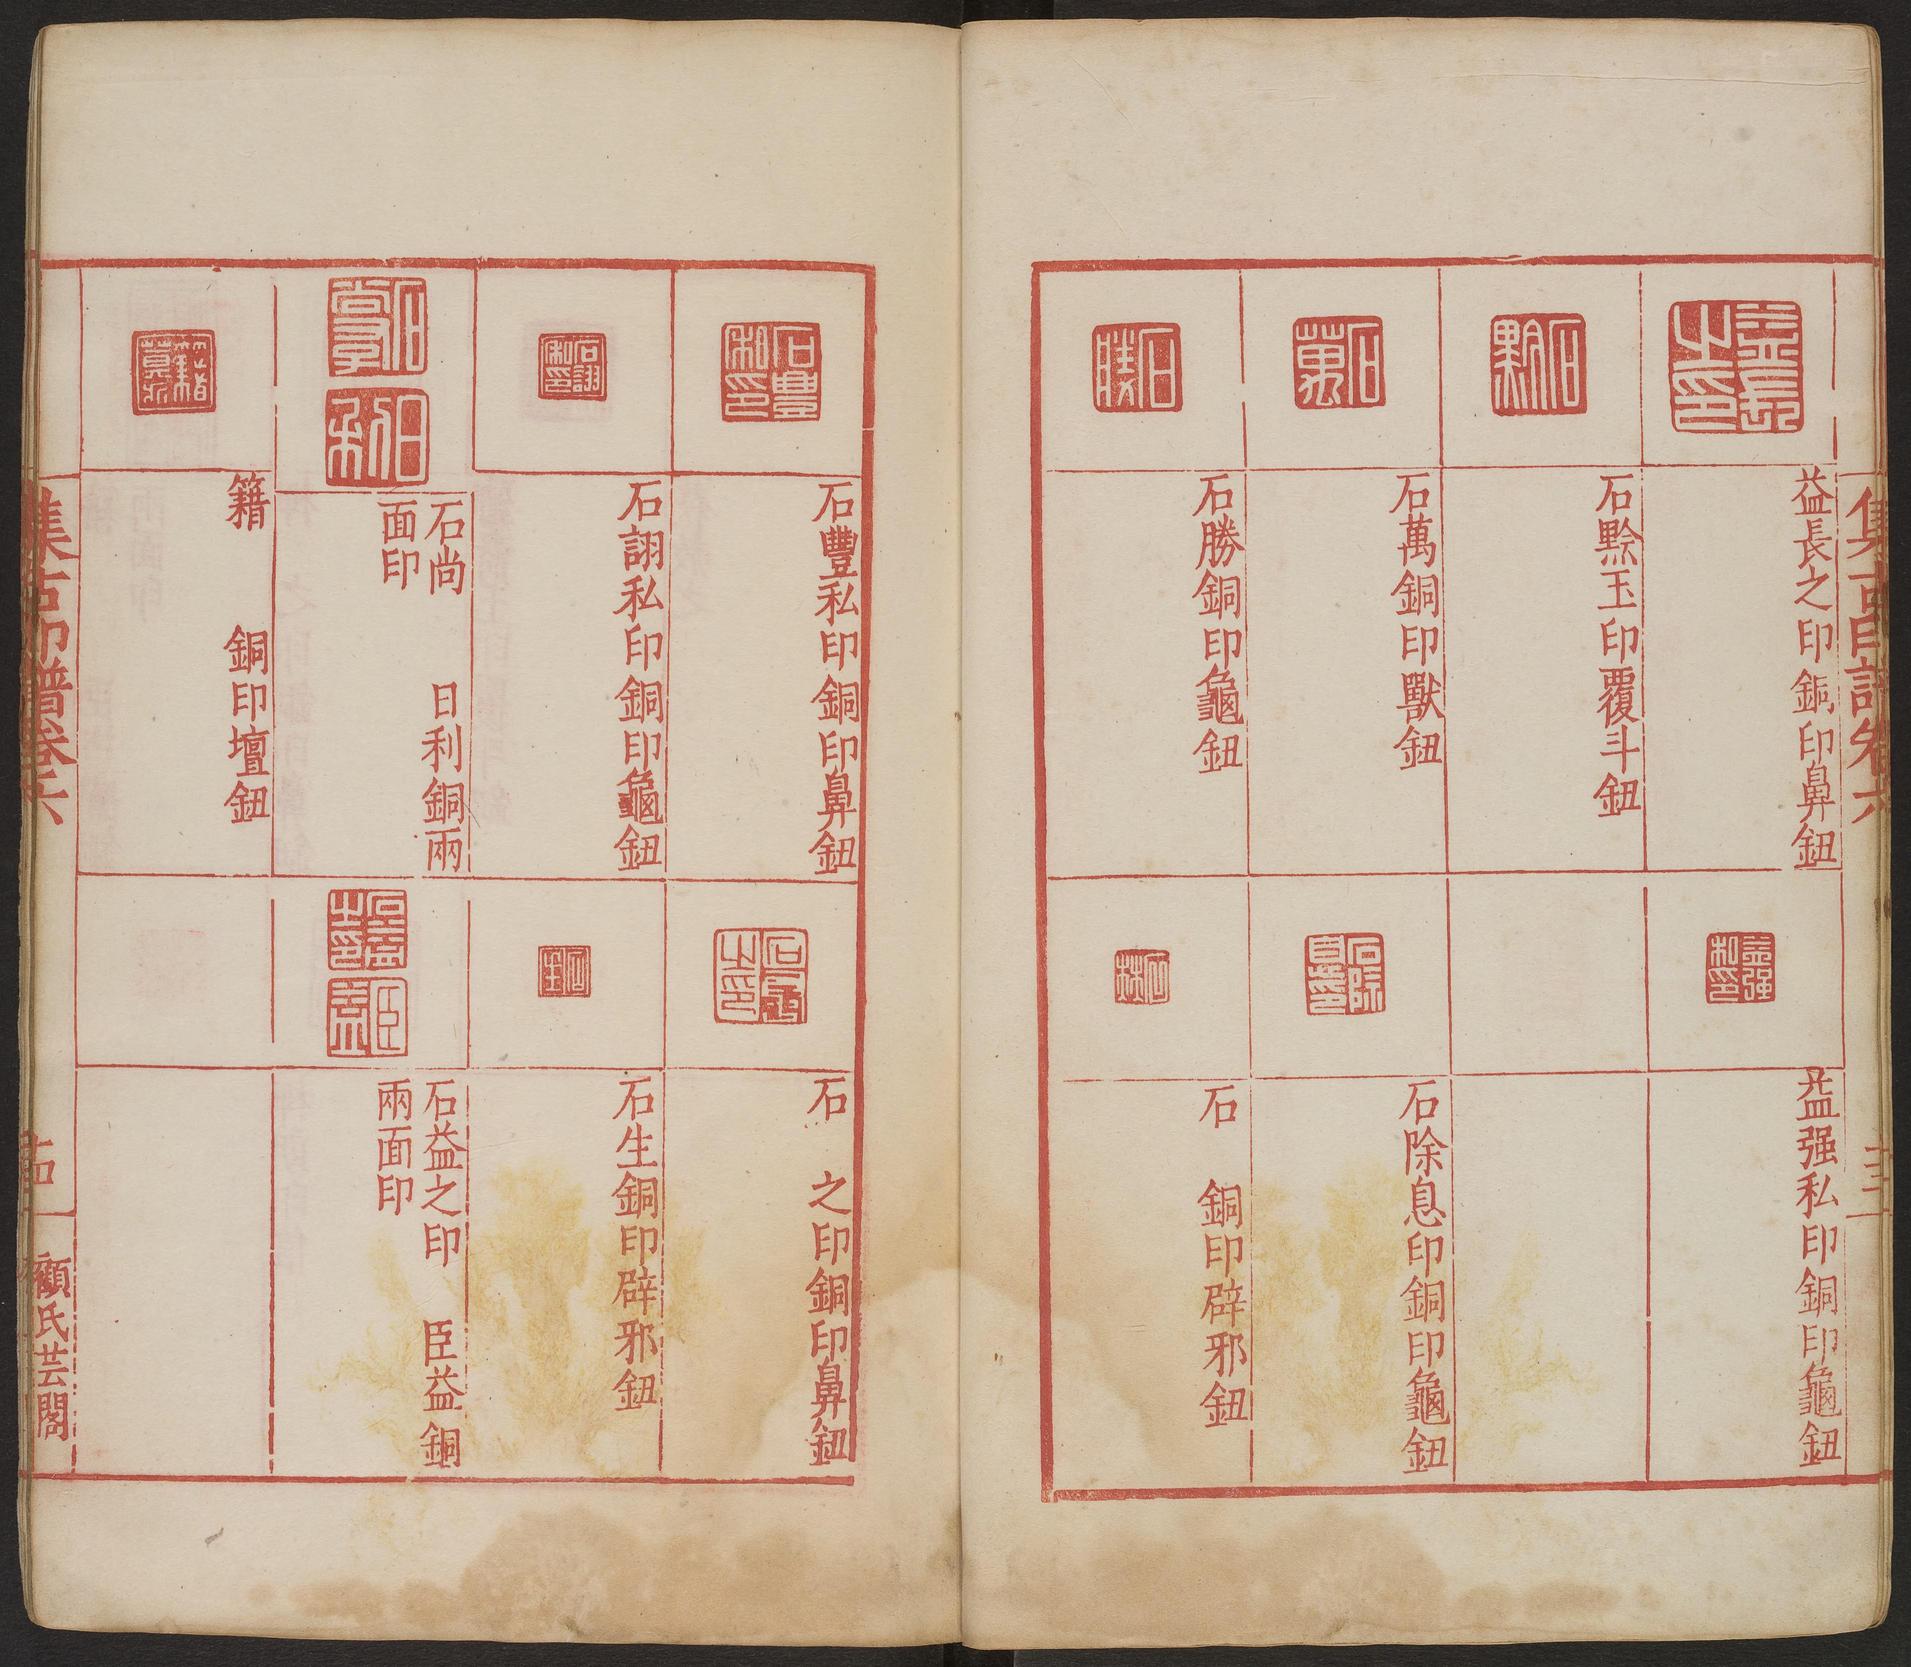 集古印譜卷六
益長之印銅印鼻鈕
石黥玉印覆斗鈕
石萬銅印獸鈕
石勝銅印龜鈕
益强私印銅印龜鈕
石除息印銅印龜鈕
石　銅印辟邪鈕
石豐私印銅印鼻鈕
石詡私印銅印龜鈕
石尚　日利銅兩
面印
籍　　銅印壇鈕
石　之印銅印鼻鈕
石生銅印辟邪鈕
石益之印　臣益銅
兩面印
集古印譜卷六
顧氏芸閣